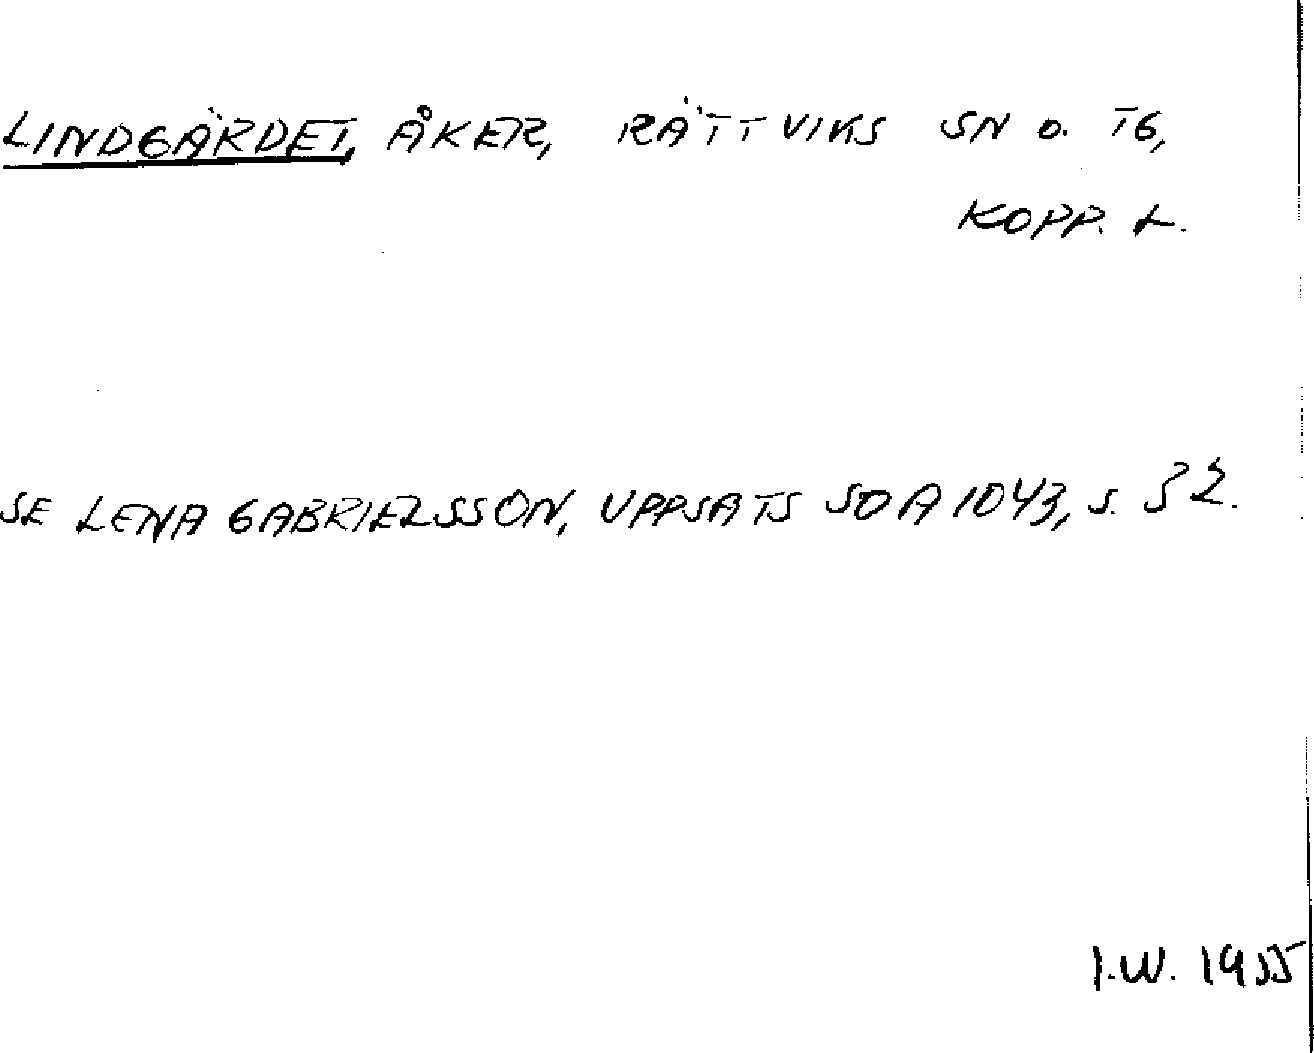 LINDGÄRDET, ÅKER, RÄTTVIKS SN O. TG,
KOPP. L.
SE LENA GABRIELSSON, UPPSATS SOA 1043, S. 52.
I.W. 1955